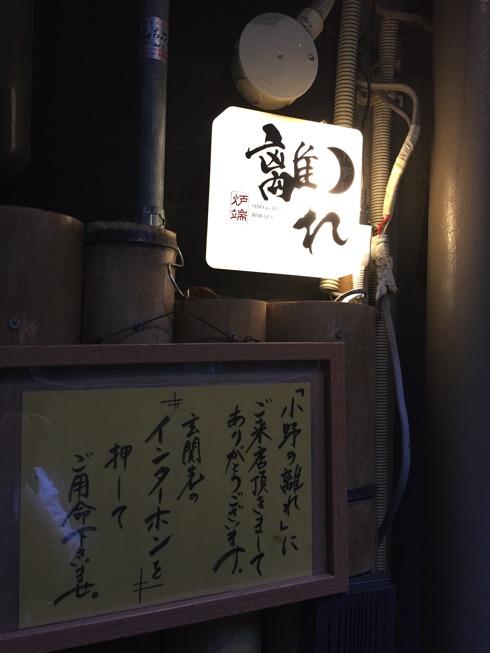 離れ
炉端
「小野の離れ」に
ご来店頂きまして
ありがとうございます。
玄関先の
インターホンを
押して
ご用命下さいませ。